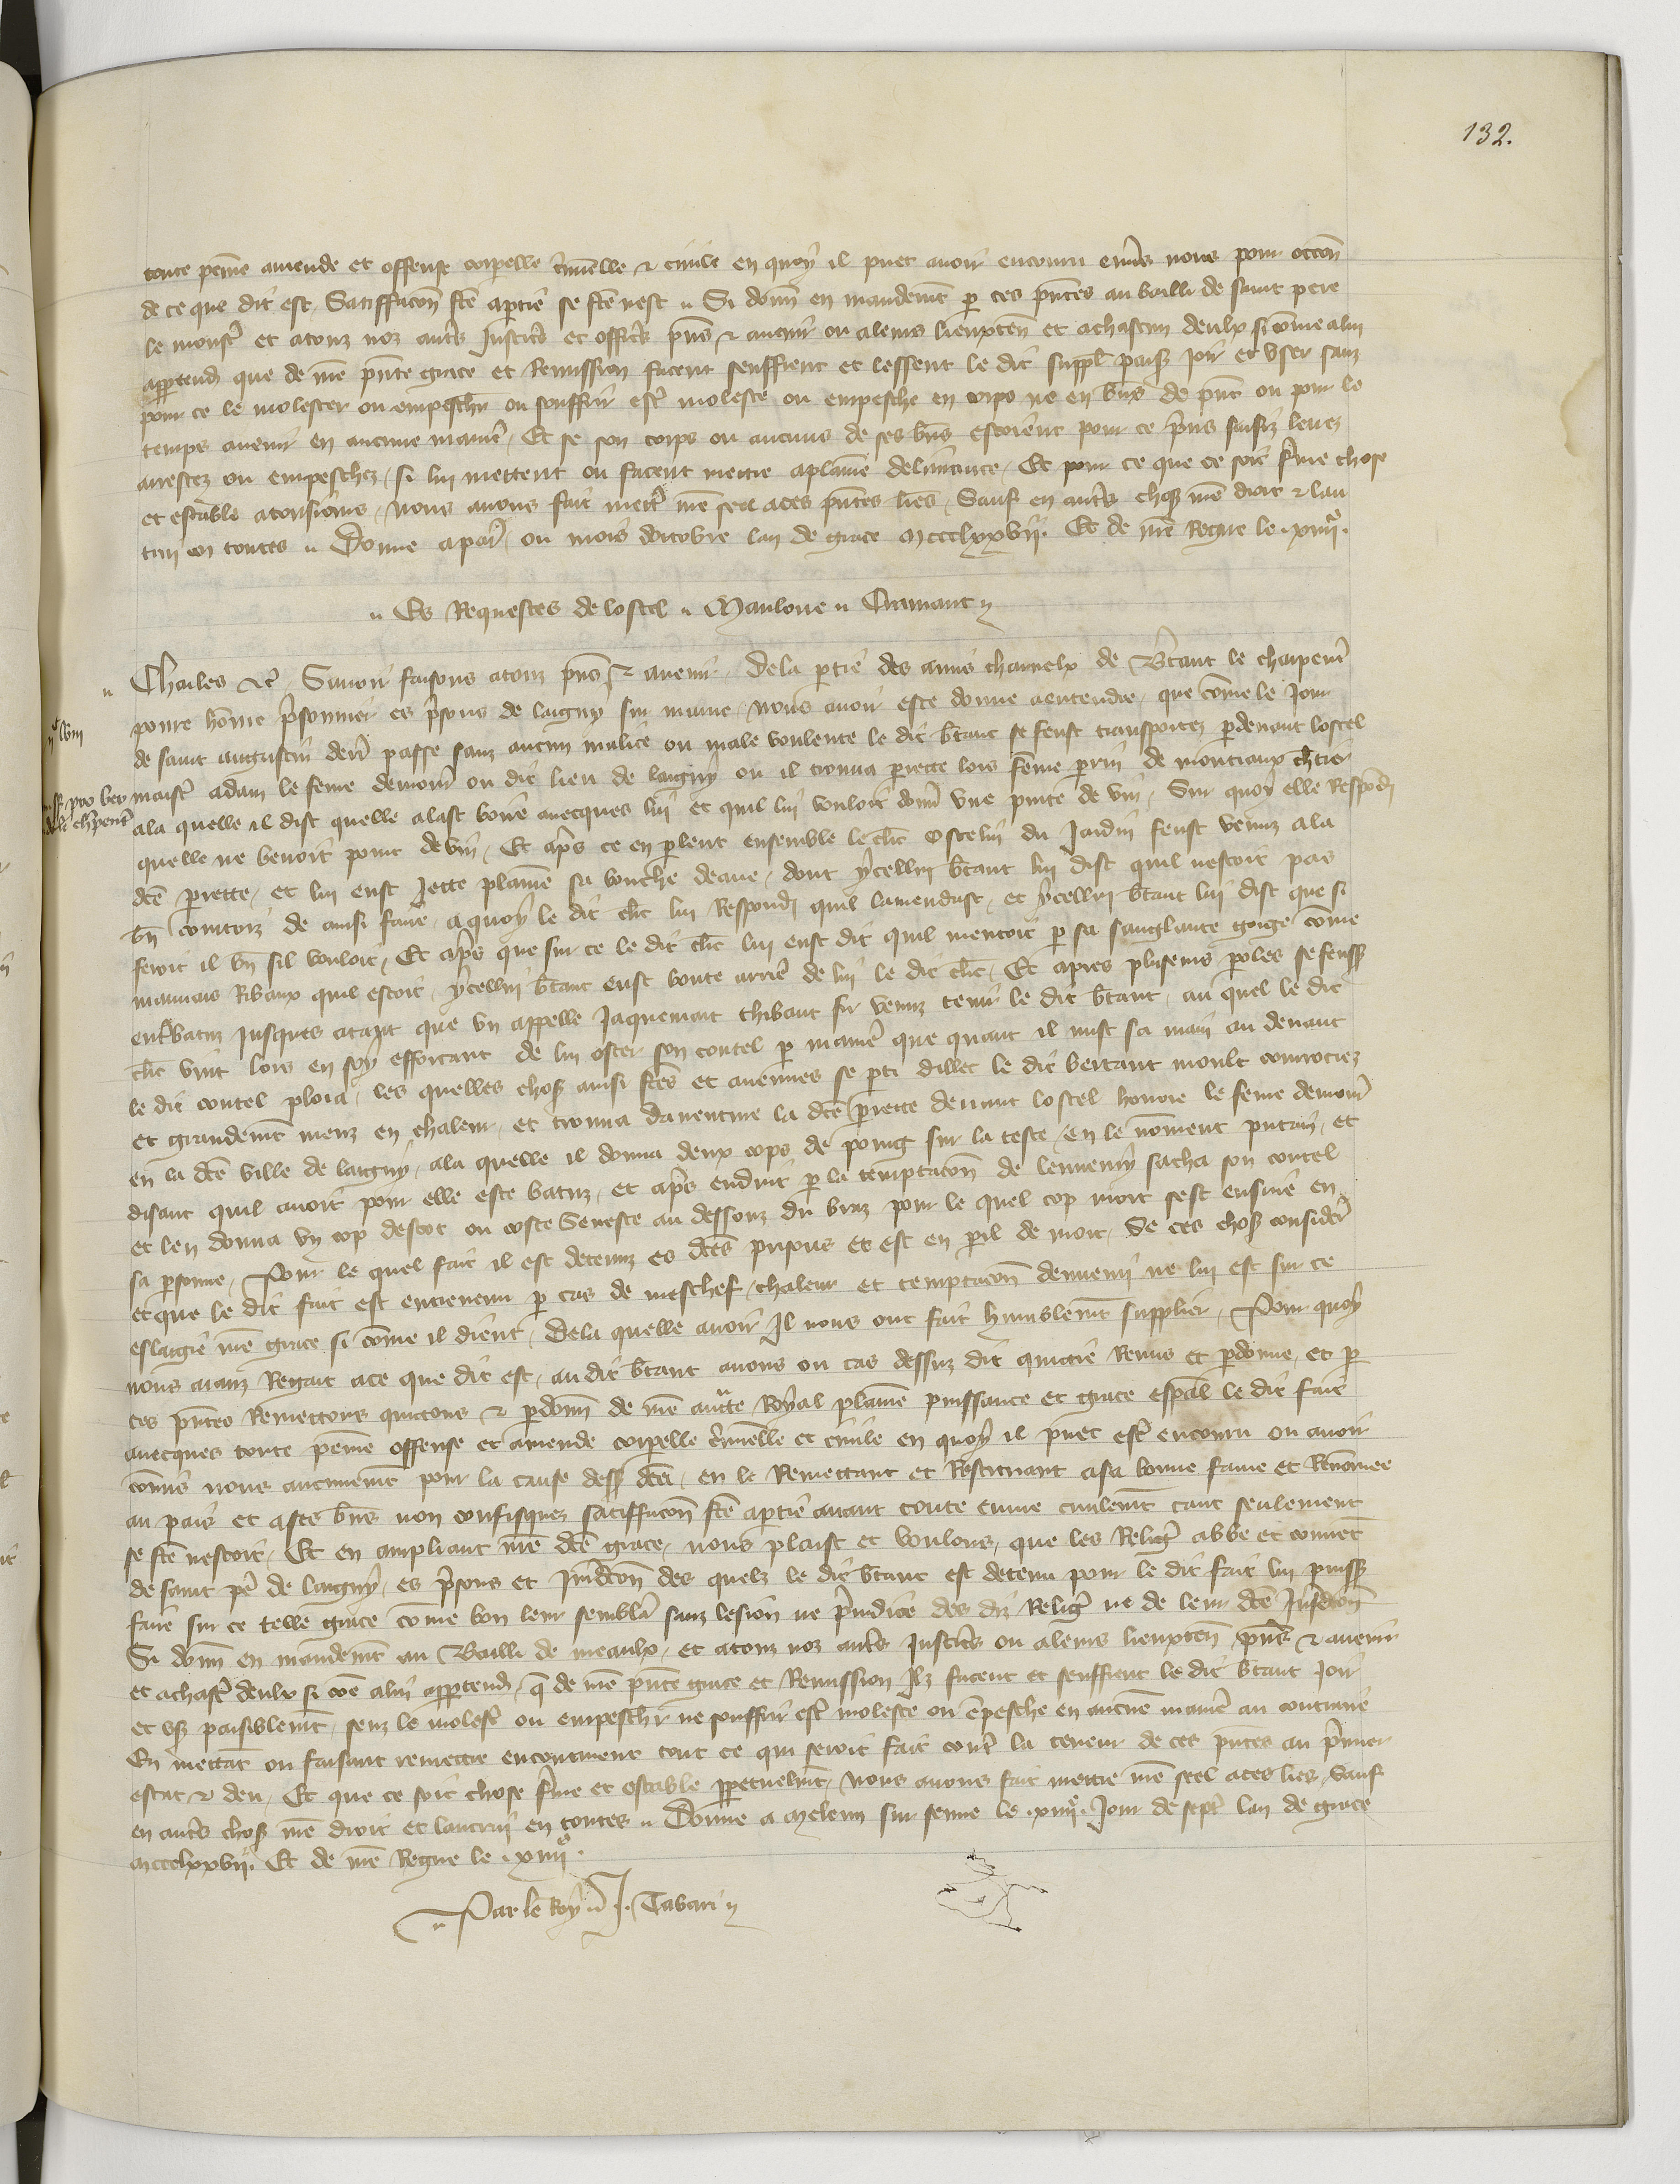 132.
toute peine amende et offense corpelle criminelle et civile en quoy il puet avoir encouru envers nous pour occon
de ce que dit est, Satiffacon fte a partie se fte nest Si donn en mandemt par ces pntes au bailli de saint pere
le monst et a touz noz autrs justics et offics pns et avenir ou a leurs lieuxten et a chascun deulx si come a lui
appartendra que de nre pnte grace et Remission facent seuffrent et lessent le dit suppl paisiblemt joir et user sanz
pour ce le molester ou empeschier ou souffrir estr moleste ou empesche en corps ne en biens de pnt ou pour le
temps avenir en aucune manie, Et se son corps ou aucuns de ses bns estoient pour ce prins saisiz levez
arrestez ou empeschez, si lui mettent ou facent mettre a plaine delivrance, Et pour ce que ce soit ferme chose
et estable a tousiours, nous avons fait mettr nre seel a ces pntes lres, Sauf en autrs choses nre droit et lau
trui en toutes Donne a paris ou mois doctobre lan de grace mccclxxvij. Et de nre Regne le .xiiije.
Es Requestes de lostel Manloue Cramant
Charles etc Savoir faisons a touz pns et avenir, De la partie des amis charnelx de Bertaut le charpentier
povre home prisonnier es prisons de laigny sur marne, nous avoir este donne a entendre, que come le jour
de saint augustin dernr passe sanz aucun malice ou male voulente le dit Bertaut se feust transportez par devant lostel
maistr adam le feure demourant ou dit lieu de laigny ou il trouva perrette lors feme perrin de montiaux chretier
a la quelle il dist quelle alast boire avecques lui et quil lui vouloit donner une pinte de vin, Sur quoy elle Respondi
quelle ne bevoit point de vin, Et apres ce en parlant ensemble le clerc Ostelin du jardin feust venuz a la
dce perrette, et lui eust jette plaine sa bouche deaue, dont ycellui Bertaut lui dist quil nestoit pas
bien courtois de ainsi faire, a quoy le dit clerc lui Respondi quil lamendast, et ycellui Bertaut lui dist que si
feroit il bien sil vouloit, Et apres que sur ce le dit clerc lui eust dit quil mentoit par sa sanglante gorge come
mauvais Ribaux quil estoit, ycellui Bertaut eust boute arriere de lui le dit clerc, Et apres plusieurs paroles se feussent
entrebatuz jusques a tant que un appelle jaquemart thibaut fu venuz tenir le dit Bertaut, au quel le dit
clerc vint lors en soy efforcant de lui oster son coutel par manie que quant il mist sa main au devant
le dit coutel ploia, les quelles choses ainsi ftes et avenues se parti dillec le dit bertaut moult courociez
et grandemt meuz en chaleur, et trouva daventure la dce perrette devant lostel honore le feure demourant
en la dce ville de laigny, a la quelle il donna deux cops de poing sur la teste en le nomment putain, et
disant quil avoit pour elle este batuz, et apres enduit par la temptacon de lennemy sacha son coutel
et len donna un cop destoc ou coste Senestre au dessouz du braz pour le quel cop mort sest ensuie en
sa personne, Pour le quel fait il est detenuz es dces prisons et est en peril de mort, Se ces choses consideres
et que le dit fait est entrevenu par cas de meschef, chaleur et temptacon denemi ne lui est sur ce
eslargie nre grace si come il dient, De la quelle avoir Il nous ont fait humblemt supplier, Pour quoy
nous aianz Regart a ce que dit est, au dit Bertaut avons ou cas dessuz dit quictie Remis et pardonne, et par
ces pntes Remettons quictons et pardonnons de nre auctte Royal plaine puissance et grace espal le dit fait
avecques toute peine offense et amende corpelle criminelle et civile en quoy il puet estr encouru ou avoir
comis nous aucunemt pour la cause dess dce, en le Remettant et Restituant a sa bonne fame et Renomee
au pais et a ses bns non confisquez satiffacon fte a partie avant toute euvre civilemt tant seulement
se fte nestoit, Et en ampliant nre dce grace, nous plaist et voulons, que les Religieux abbe et convent
de saint pere de laigny, es prisons et juridicon des quelz le dit Bertaut est detenu pour le dit fait lui puissent
faire sur ce telle grace come bon leur semblera sanz lesion ne prejudice des diz Religieux ne de leur dce juridicon
Si donn en mandemt au Bailli de meaulx, et a touz noz autrs justics ou a leurs lieuxten pns et avenir
et a chascun deulx si coe a lui appartendra, que de nre pnte grace et Remission Ilz facent et seuffrent le dit Bertaut joir
et user paisiblemt, senz le molester ou empeschier ne souffrir estr moleste ou empesche en aucune manie au contraire
En mettant ou faisant remettre encontinent tout ce qui seroit fait contre la teneur de ces pntes au premier
estat et deu, Et que ce soit chose ferme et estable perpetuelmt, nous avons fait mettre nre seel a ces lres, Sauf
en autrs choses nre droit et lautrui en toutes Donne a Meleun sur senne le .xiiije. jour de sept lan de grace
mccclxxvij. Et de nre Regne le .xiiije.
Par le Roy J. Tabari